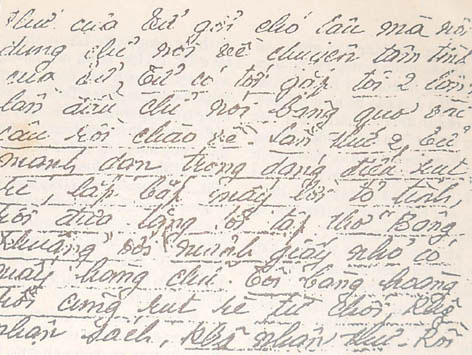 Thư của Tử gởi cho lâu mà nội
dung chỉ nói về chuyện tâm tình
của Tử, Tử có tới gặp tôi 2 lần,
lần đầu chỉ nói bâng quơ vài
câu rồi chào về. Lần thứ 2, Tử
mạnh dạn trong dáng điệu rụt
rè, lắp bắp mấy lời tỏ tình,
rồi đưa tặng tôi tập thơ "Bâng
Khuâng" với mảnh giấy nhỏ có
mấy hàng chữ. Tôi bàng hoàng
rồi cũng rụt rè từ chối, không
nhận sách, không nhận thư. Rồi